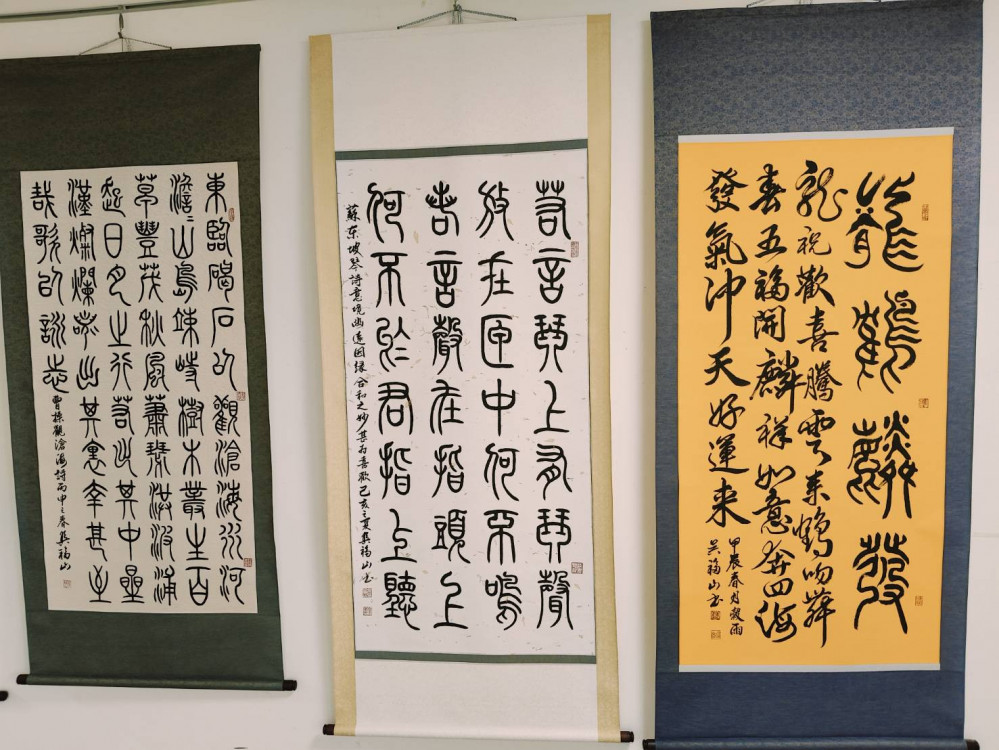 東臨碣石以觀滄海水何
澹〻山島竦峙樹木叢生百
草豐茂秋風蕭瑟洪波涌
起日月之行若出其中星
漢燦爛若出其裏幸甚至
哉歌以詠志
曹操觀滄海詩丙申之春吳福山
若言琴上有琴聲
放在匣中何不鳴
若言聲在指頭上
何不於君指上聽
蘇东坡琴詩意境幽遠因緣合和之妙甚为喜歡己亥之夏吳福山书
龍鶴麟發
龍祝歡喜騰雲来鶴吻舞
春五福開麟祥如意奔四海
發氣冲天好運来
甲辰春月穀雨
吴福山书